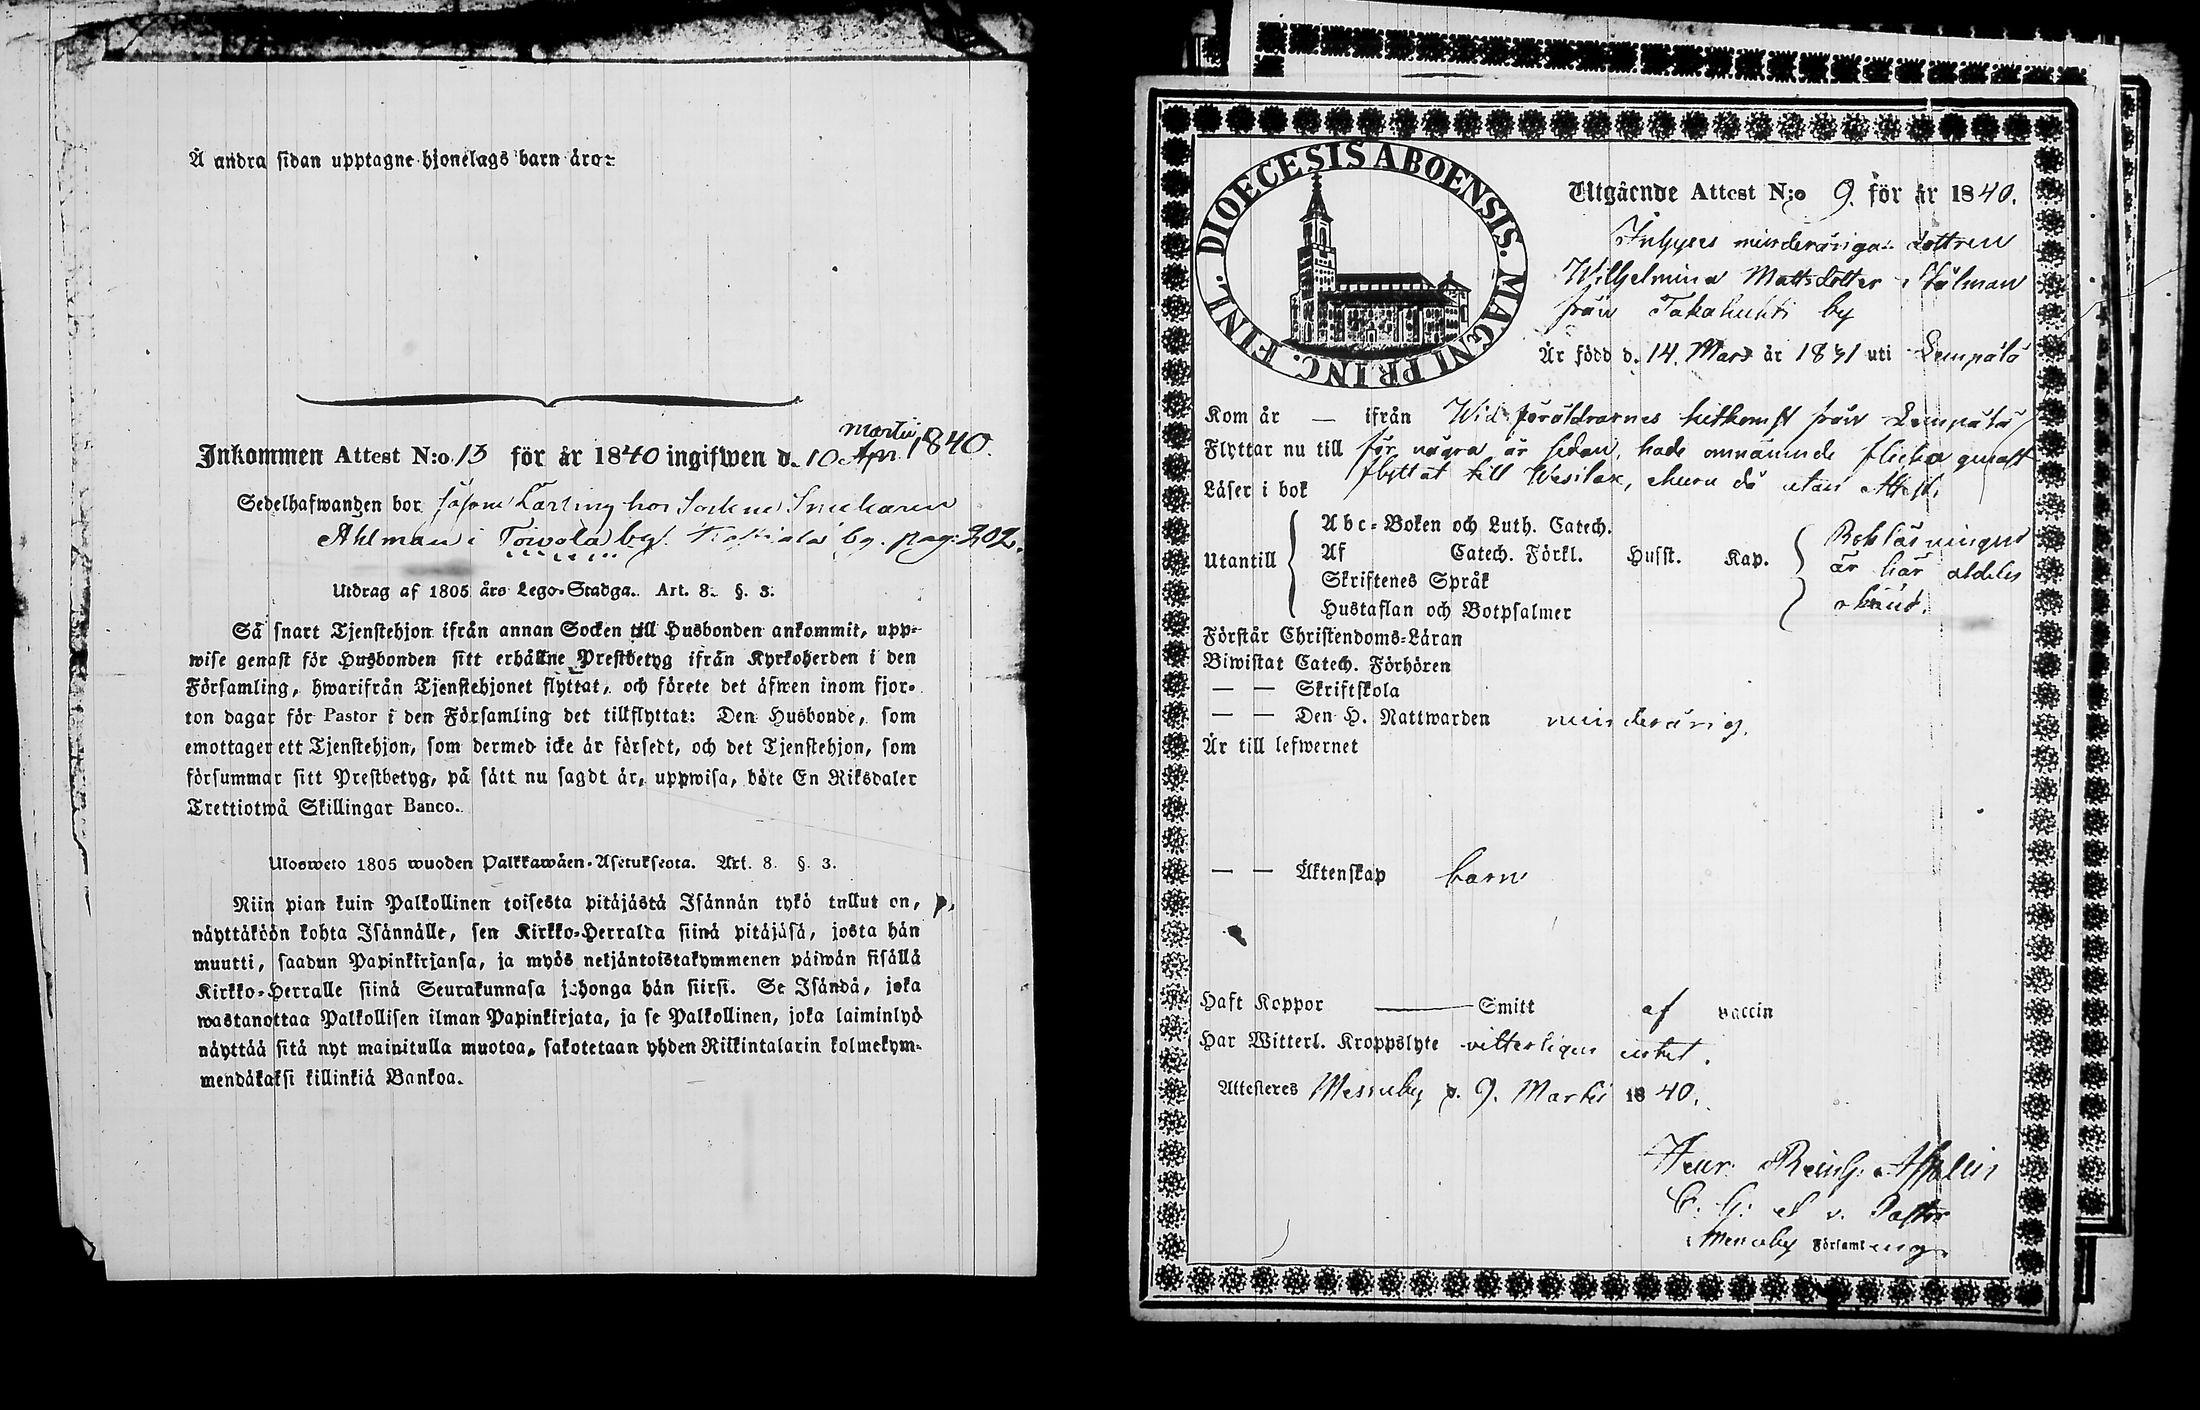 Å andra sidan upptagne hjonelags barn äro:
Inkommen Attest N:o 13 för år 1840 ingifwen d. 10 Apr. martii 1840.
Sedelhafwanden bor såsom Lärling hos Socknes Snickaren
Ahlman i Toivola by. by. pag: 202.
Utdrag af 1805 års Lego-Stadga. Art. 8. §. 3.
Så snart Tjenstehjon ifrån annan Socken till Husbonden ankommit, upp-
wise genast för Husbonden sitt erhållne Prestbetyg ifrån Kyrkoherden i den
Församling, hwarifrån Tjenstehjonet flyttat, och förete det äfwen inom fjor-
ton dagar för Pastor i den Församling det tillflyttat: Den Husbonde, som
emottager ett Tjenstehjon, som dermed icke är försedt, och det Tjenstehjon, som
försummar sitt Prestbetyg, på sätt nu sagdt är, uppwisa, böte En Riksdaler
Trettiotwå Skillingar Banco.
Ulosweto 1805 wuoden Palkkawäen-Asetuksesta. Art. 8. §. 3.
Niin pian kuin Palkollinen toisesta pitäjästä Isännän tykö tullut on,
näyttäköön kohta Isännälle, sen Kirkko-Herralda siinä pitäjäsä, josta hän
muutti, saadun Papinkirjansa, ja myös neljäntoistakymmenen päiwän sisällä
Kirkko-Herralle siinä Seurakunnasa johonga hän siirsi. Se Isändä, joka
wastanottaa Palkollisen ilman Papinkirjata, ja se Palkollinen, joka laiminlyö
näyttää sitä nyt mainitulla muotoa, sakotetaan yhden Riikintalarin kolmekym-
mendäkaksi killinkiä Bankoa.
DIOECESIS ABOENSIS. MAGNI PRINC. FINL.
Utgående Attest N:o 9. för år 1840.
Inhyses minderåriga dottren
Wilhelmina Mattsdotter Stålman
från Takahuhti by
Är född d. 14. Mars år 1831 uti Lempälä
Kom år — ifrån Wid föräldrarnes hitkomst från Lempälä
Flyttar nu till för några år sedan, hade omnämnde flicka genast
Läser i bok flyttat till Wesilax, ehuru då utan Attest.
Utantill
Abc-Boken och Luth. Catech.
Af Catech. Förkl. Husst. Kap.
Skriftenes Språk
Hustaflan och Botpsalmer
Bokläsningen
är här aldeles
okänd.
Förstår Christendoms-Läran
Biwistat Catech. Förhören
— — Skriftskola
— — Den H. Nattwarden minderårig.
Är till lefwernet
— — Äktenskap barn
Haft Koppor — Smitt af vaccin
Har Witterl. Kroppslyte vitterligen intet.
Attesteres Messuby d. 9. Martii 1840.
Henr. Reinh. Asplin
C. G: et v. Pastor
i Messuby Församling.